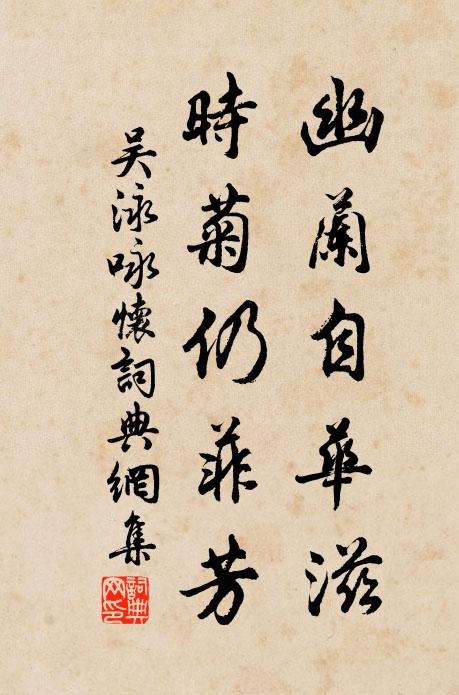 幽蘭自華滋
時菊仍菲芳
吴泳咏懷詞典網集
詞典网印